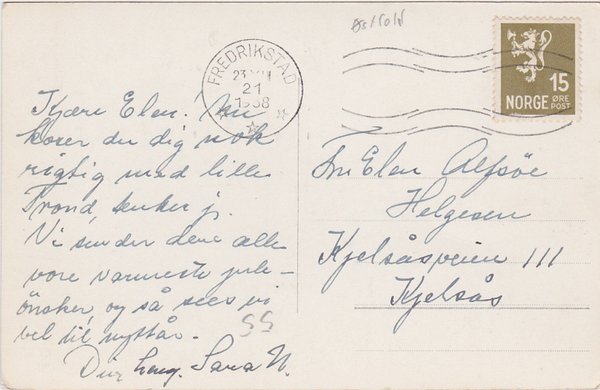 Østfold
FREDRIKSTAD
23 XII
21
1938
15
NORGE ØRE POST
Kjære Elen. Nu
koser du dig nok
rigtig med lille
Trond, tenker j.
Vi sender dere alle
vore varmeste jule-
ønsker, og så sees vi
vel til nyttår.
SS
Din heng. Sara N.
Fru Elen Alfsøe
Helgesen
Kjelsåsveien 111
Kjelsås